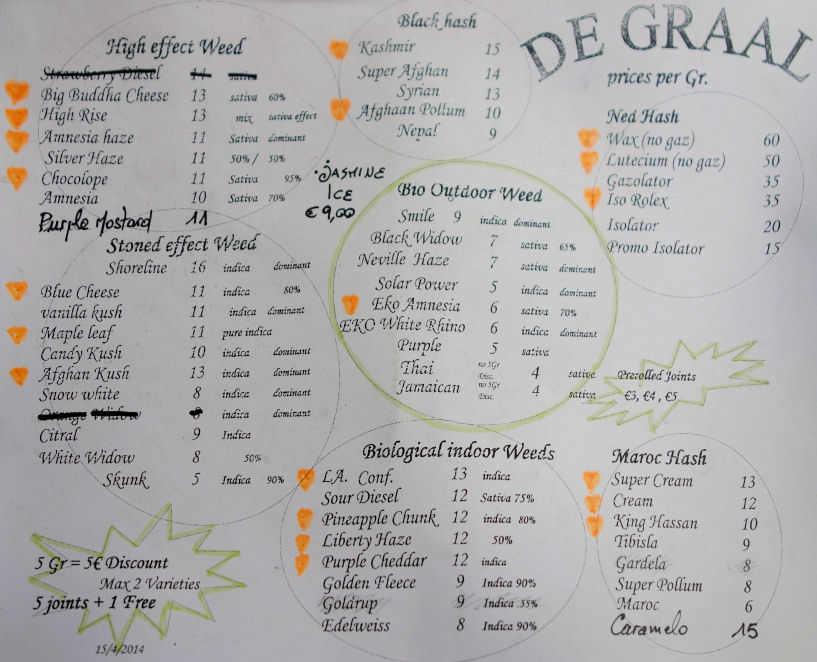 DE GRAAL
prices per Gr.
High effect Weed
Strawberry Diesel 11 sativa
Big Buddha Cheese 13 sativa 60%
High Rise 13 mix sativa effect
Amnesia haze 11 Sativa dominant
Silver Haze 11 50% / 50%
Chocolope 11 Sativa 95%
Amnesia 10 Sativa 70%
Purple Mostard 11
Black hash
Kashmir 15
Super Afghan 14
Syrian 13
Afghaan Pollum 10
Nepal 9
Ned Hash
Wax (no gaz) 60
Lutecium (no gaz) 50
Gazolator 35
Iso Rolex 35
Isolator 20
Promo Isolator 15
JASMINE
ICE
€9,00
Stoned effect Weed
Shoreline 16 indica dominant
Blue Cheese 11 indica 80%
vanilla kush 11 indica dominant
Maple leaf 11 pure indica
Candy Kush 10 indica dominant
Afghan Kush 13 indica dominant
Snow white 8 indica dominant
Orange Widow 8 indica dominant
Citral 9 Indica
White Widow 8 50%
Skunk 5 Indica 90%
Bio Outdoor Weed
Smile 9 indica dominant
Black Widow 7 sativa 65%
Neville Haze 7 sativa dominant
Solar Power 5 indica dominant
Eko Amnesia 6 sativa 70%
EKO White Rhino 6 indica dominant
Purple 5 sativa
Thai no 5Gr Disc. 4 sativa
Jamaican no 5Gr Disc. 4 sativa
Prerolled Joints
€3, €4 , €5
Biological indoor Weeds
L.A. Conf. 13 indica
Sour Diesel 12 Sativa 75%
Pineapple Chunk 12 indica 80%
Liberty Haze 12 50%
Purple Cheddar 12 indica
Golden Fleece 9 Indica 90%
Goldrup 9 Indica 55%
Edelweiss 8 Indica 90%
Maroc Hash
Super Cream 13
Cream 12
King Hassan 10
Tibisla 9
Gardela 8
Super Pollum 8
Maroc 6
Caramelo 15
5 Gr = 5€ Discount
Max 2 Varieties
5 joints + 1 Free
15/4/2014